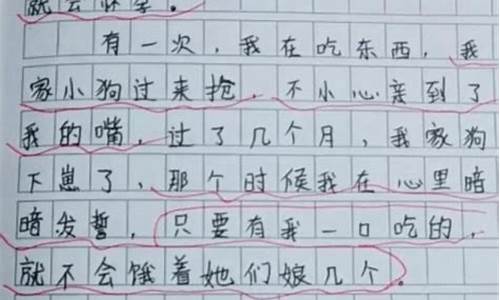 就会怀孕。
有一次，我在吃东西，我
家小狗过来抢，不小心亲到了
我的嘴，过了几个月，我家狗
下崽了，那个时候我在心里暗
暗发誓，只要有我一口吃的，
就不会饿着她们娘几个。